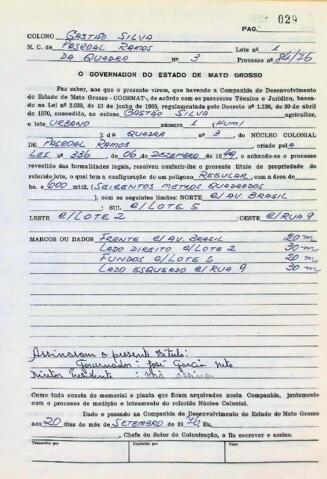 PAG. 029
COLONO GASTÃO SILVA
N. C. de PASCOAL RAMOS Lote nº 1
DA QUADRA Nº 3 Processo nº 84/76
O GOVERNADOR DO ESTADO DE MATO GROSSO
Faz saber, aos que o presente virem, que havendo a Companhia de Desenvolvimento
do Estado de Mato Grosso - CODEMAT-, de acordo com os parecêres Técnico e Jurídico, basea-
da na Lei nº 2.023, de 10 de junho de 1969, regulamentada pelo Decreto nº 1.138, de 30 de abril
de 1970, concedido, ao colono GASTÃO SILVA agricultor,
o lote URBANO número 1 (HUM)
); da QUADRA nº 3 do NÚCLEO COLONIAL
DE PASCOAL RAMOS criado pela
LEI Nº 336, de 06 de DEZEMBRO de 1949, e achando-se o processo
revestido das formalidades legais, resolveu conferir-lhe o presente título de propriedade do
referido lote, o qual tem a configuração de um polígono REGULAR, com a área de
hs. e 600 mts2 (SEISCENTOS METROS QUADRADOS
), com os seguintes limites: NORTE C/ AV. BRASIL
; SUL C/ LOTE 5
LESTE C/ LOTE 2 ; OESTE C/ RUA 9
MARCOS OU DADOS FRENTE C/ AV. BRASIL 20 m
LADO DIREITO C/ LOTE 2 30 m
FUNDOS C/ LOTE 5 20 m
LADO ESQUERDO C/ RUA 9 30 m
Assinaram o presente título:
Governador: José Garcia Neto
Diretor Presidente: não
Como tudo consta do memorial e planta que ficam arquivados nesta Companhia, juntamente
com o processo de medição e loteamento do referido Núcleo Colonial.
Dado e passado na Companhia de Desenvolvimento do Estado de Mato Grosso
aos 20 dias do mês de SETEMBRO de 1976, Eu,
, Chefe do Setor de Colonização, o fiz escrever e assino.
Transcrito por Conferido por Visto